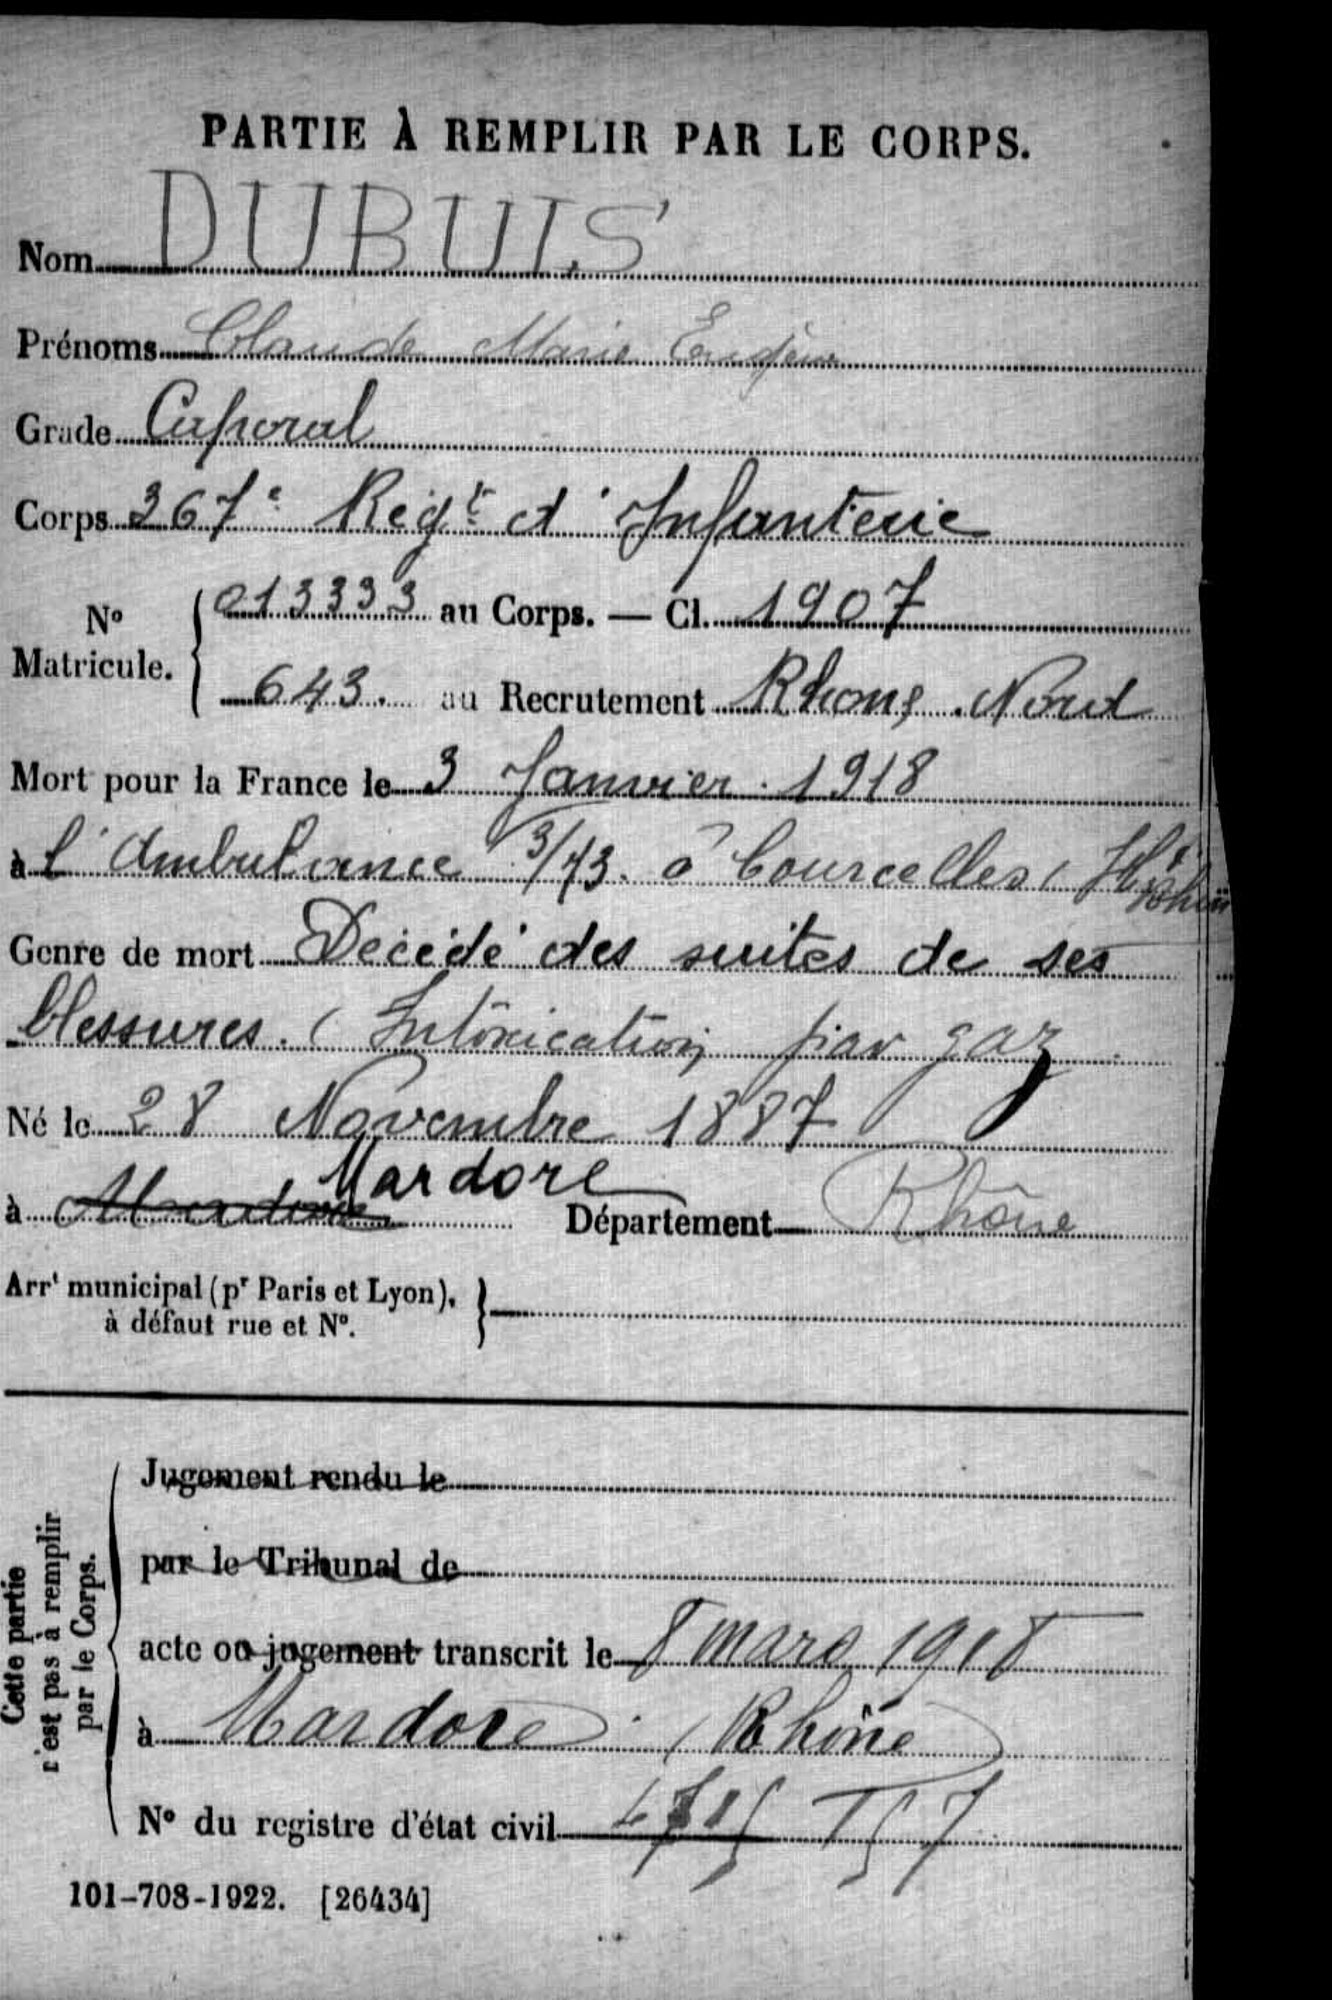 PARTIE À REMPLIR PAR LE CORPS.
Nom DUBUIS
Prénoms Claude Marie Eugène
Grade Caporal
Corps 367e Régt d'Infanterie
No Matricule. 013333 au Corps. — Cl. 1907
643. au Recrutement Rhone Nord
Mort pour la France le 3 Janvier 1918
à l'Ambulance 3/73. à Courcelles (Ht Rhin
Genre de mort Décédé des suites de ses
blessures. (Intoxication par gaz
Né le 28 Novembre 1887
à Mardore Département Rhône
Arrt municipal (pr Paris et Lyon),
à défaut rue et No.
Cette partie
n'est pas à remplir
par le Corps.
Jugement rendu le
par le Tribunal de
acte ou jugement transcrit le 8 mars 1918
à Mardore (Rhône)
No du registre d'état civil
101-708-1922. [26434]